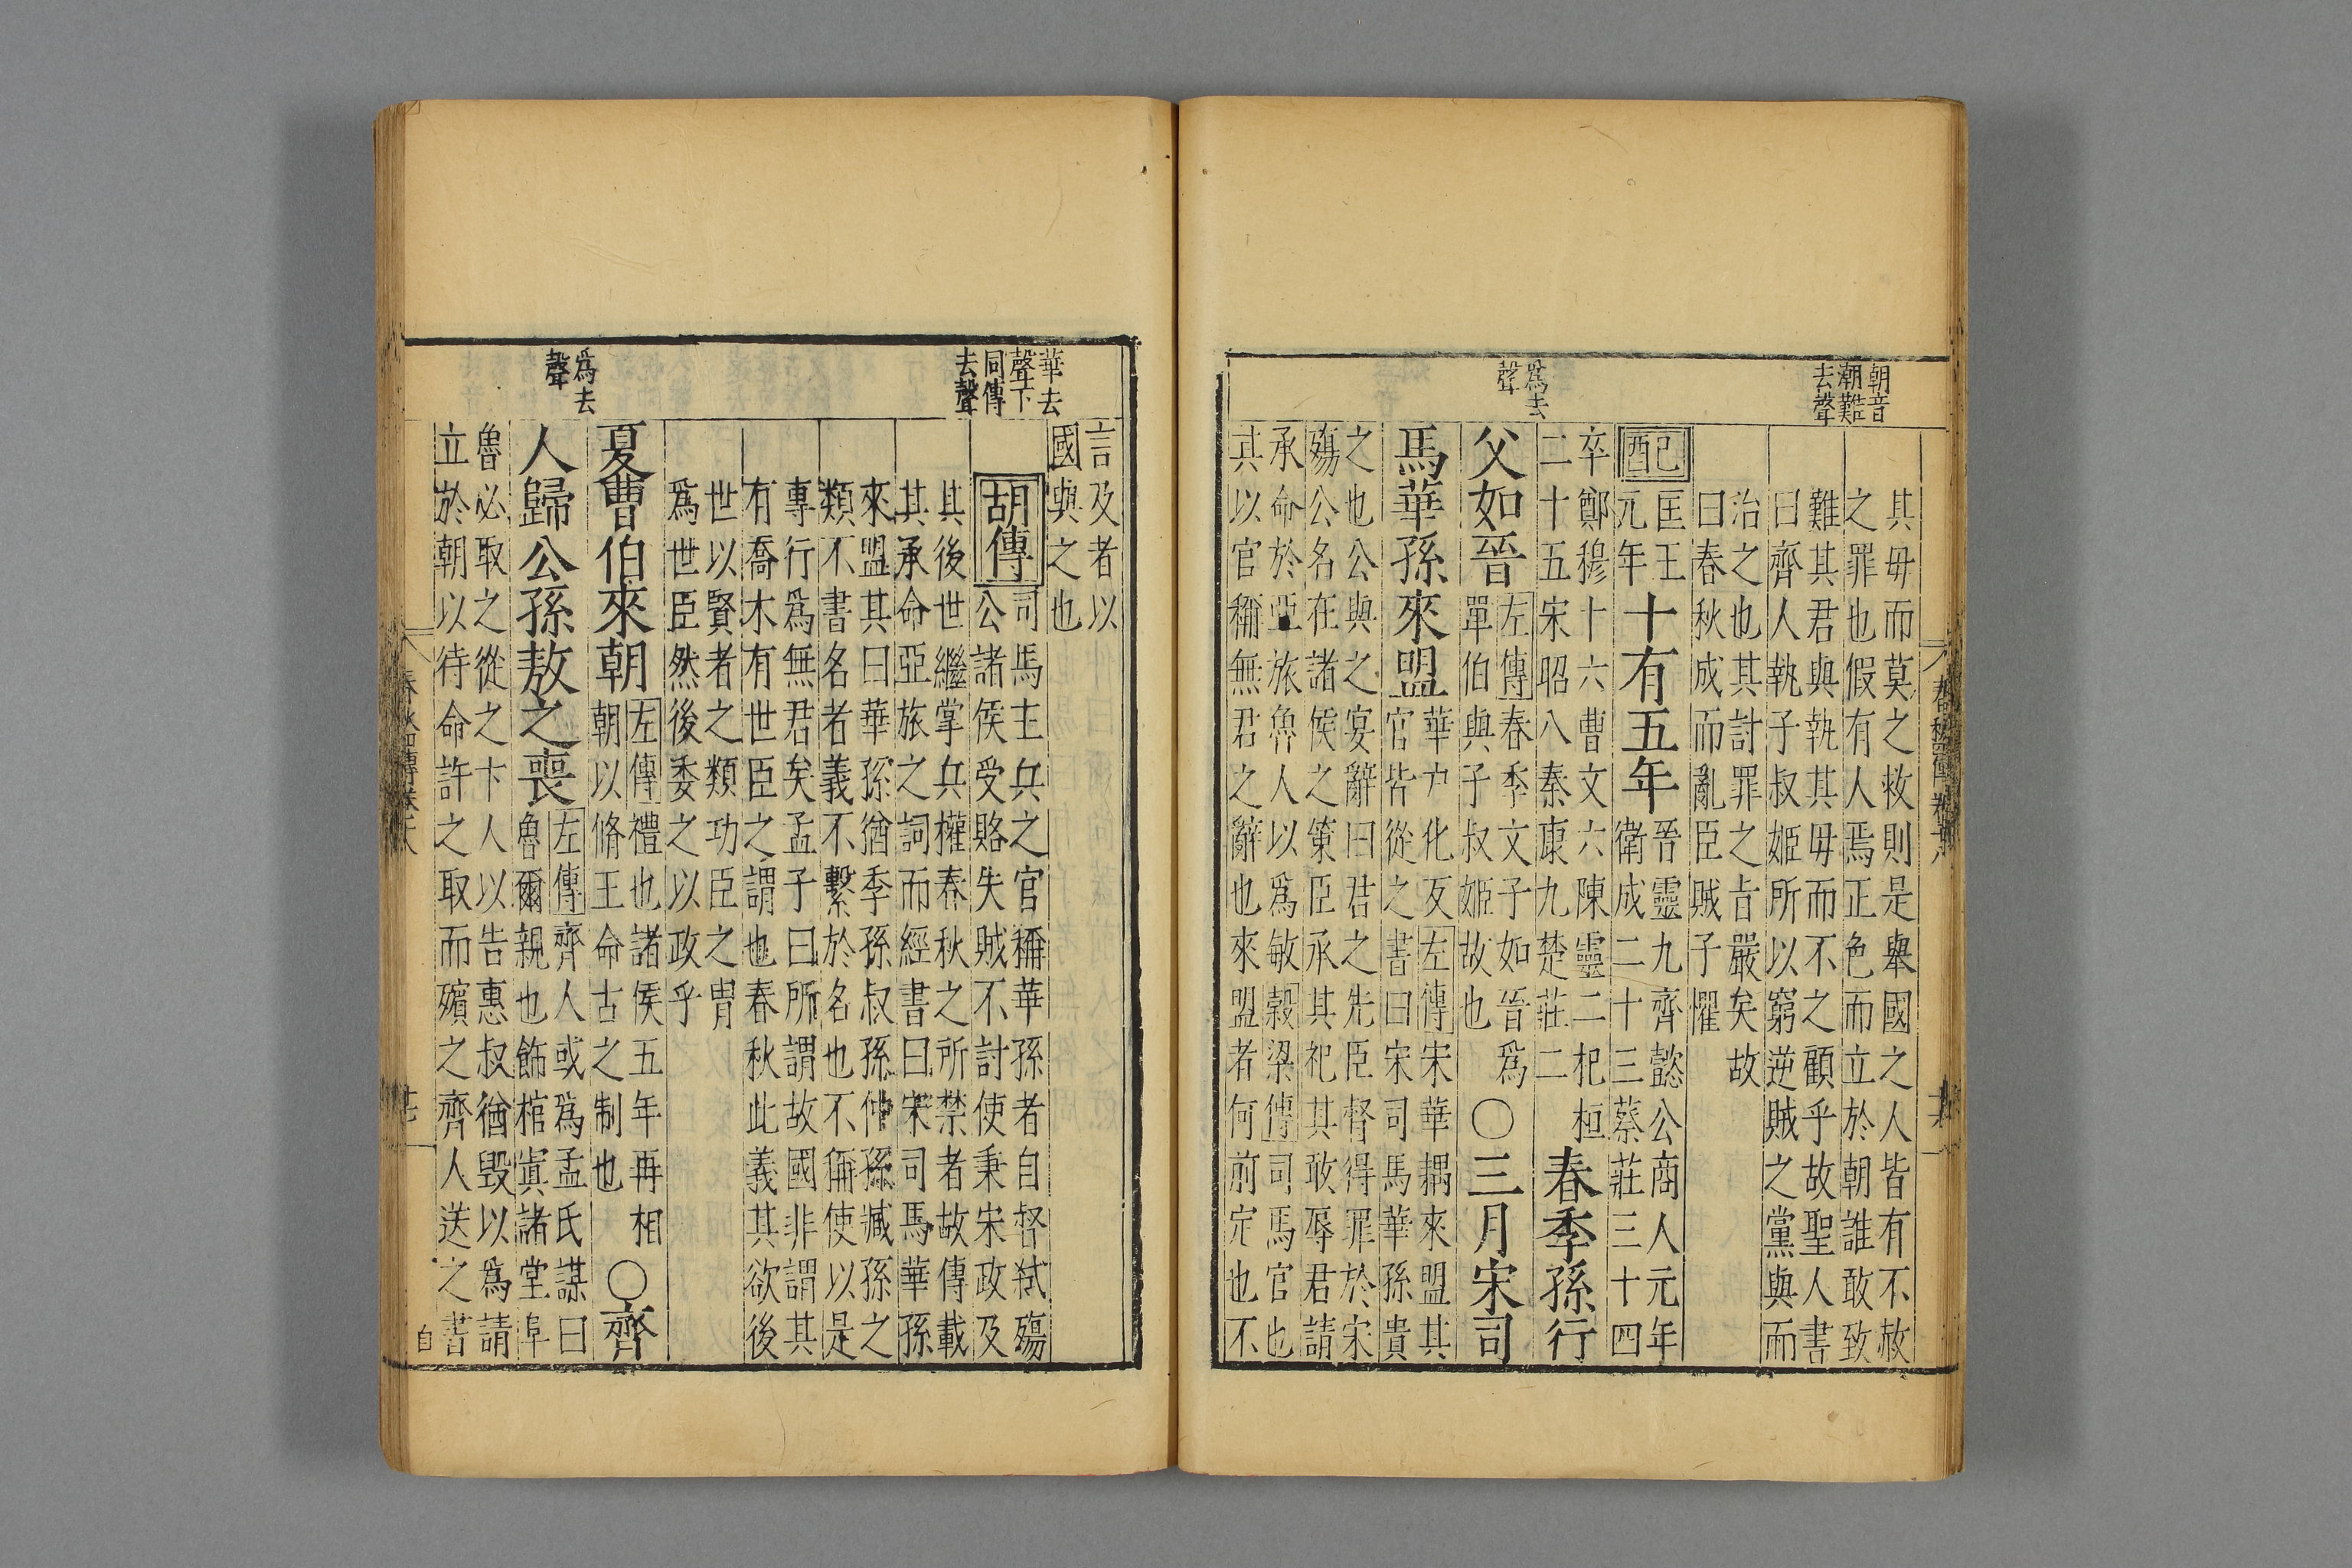 朝音
潮難
去聲
爲去
聲
其毋而莫之救則是舉國之人皆有不赦
之罪也假有人焉正色而立於朝誰敢致
難其君與執其毋而不之顧乎故聖人書
曰齊人執子叔姬所以窮逆賊之黨與而
治之也其討罪之旨嚴矣故
曰春秋成而亂臣賊子懼
己酉
匡王
元年
十有五年
晉靈九齊懿公商人元年
衛成二十三蔡莊三十四
卒鄭穆十六曹文六陳靈二杞桓
二十五宋昭八秦康九楚莊二
春季孫行
父如晉
左傳春季文子如晉爲
單伯與子叔姬故也
〇三月宋司
馬華孫來盟
華戸化反左傳宋華耦來盟其
官皆從之書曰宋司馬華孫貴
之也公與之宴辭曰君之先臣督得罪於宋
殤公名在諸侯之策臣承其祀其敢辱君請
承命於亞旅魯人以爲敏穀梁傳司馬官也
其以官稱無君之辭也來盟者何前定也不
華去
聲下
同傳
去聲
爲去
聲
言及者以
國與之也
胡傳
司馬主兵之官稱華孫者自督弑殤
公諸侯受賂失賊不討使秉宋政及
其後世繼掌兵權春秋之所禁者故傳載
其承命亞旅之詞而經書曰宋司馬華孫
來盟其曰華孫猶季孫叔孫仲孫臧孫之
類不書名者義不繫於名也不稱使以是
專行爲無君矣孟子曰所謂故國非謂其
有喬木有世臣之謂也春秋此義其欲後
世以賢者之類功臣之冑
爲世臣然後委之以政乎
夏曹伯來朝
左傳禮也諸侯五年再相
朝以脩王命古之制也
〇齊
人歸公孫敖之喪
左傳齊人或爲孟氏謀曰
魯爾親也飾棺寘諸堂阜
魯必取之從之卞人以告惠叔猶毀以爲請
立於朝以待命許之取而殯之齊人送之書
自